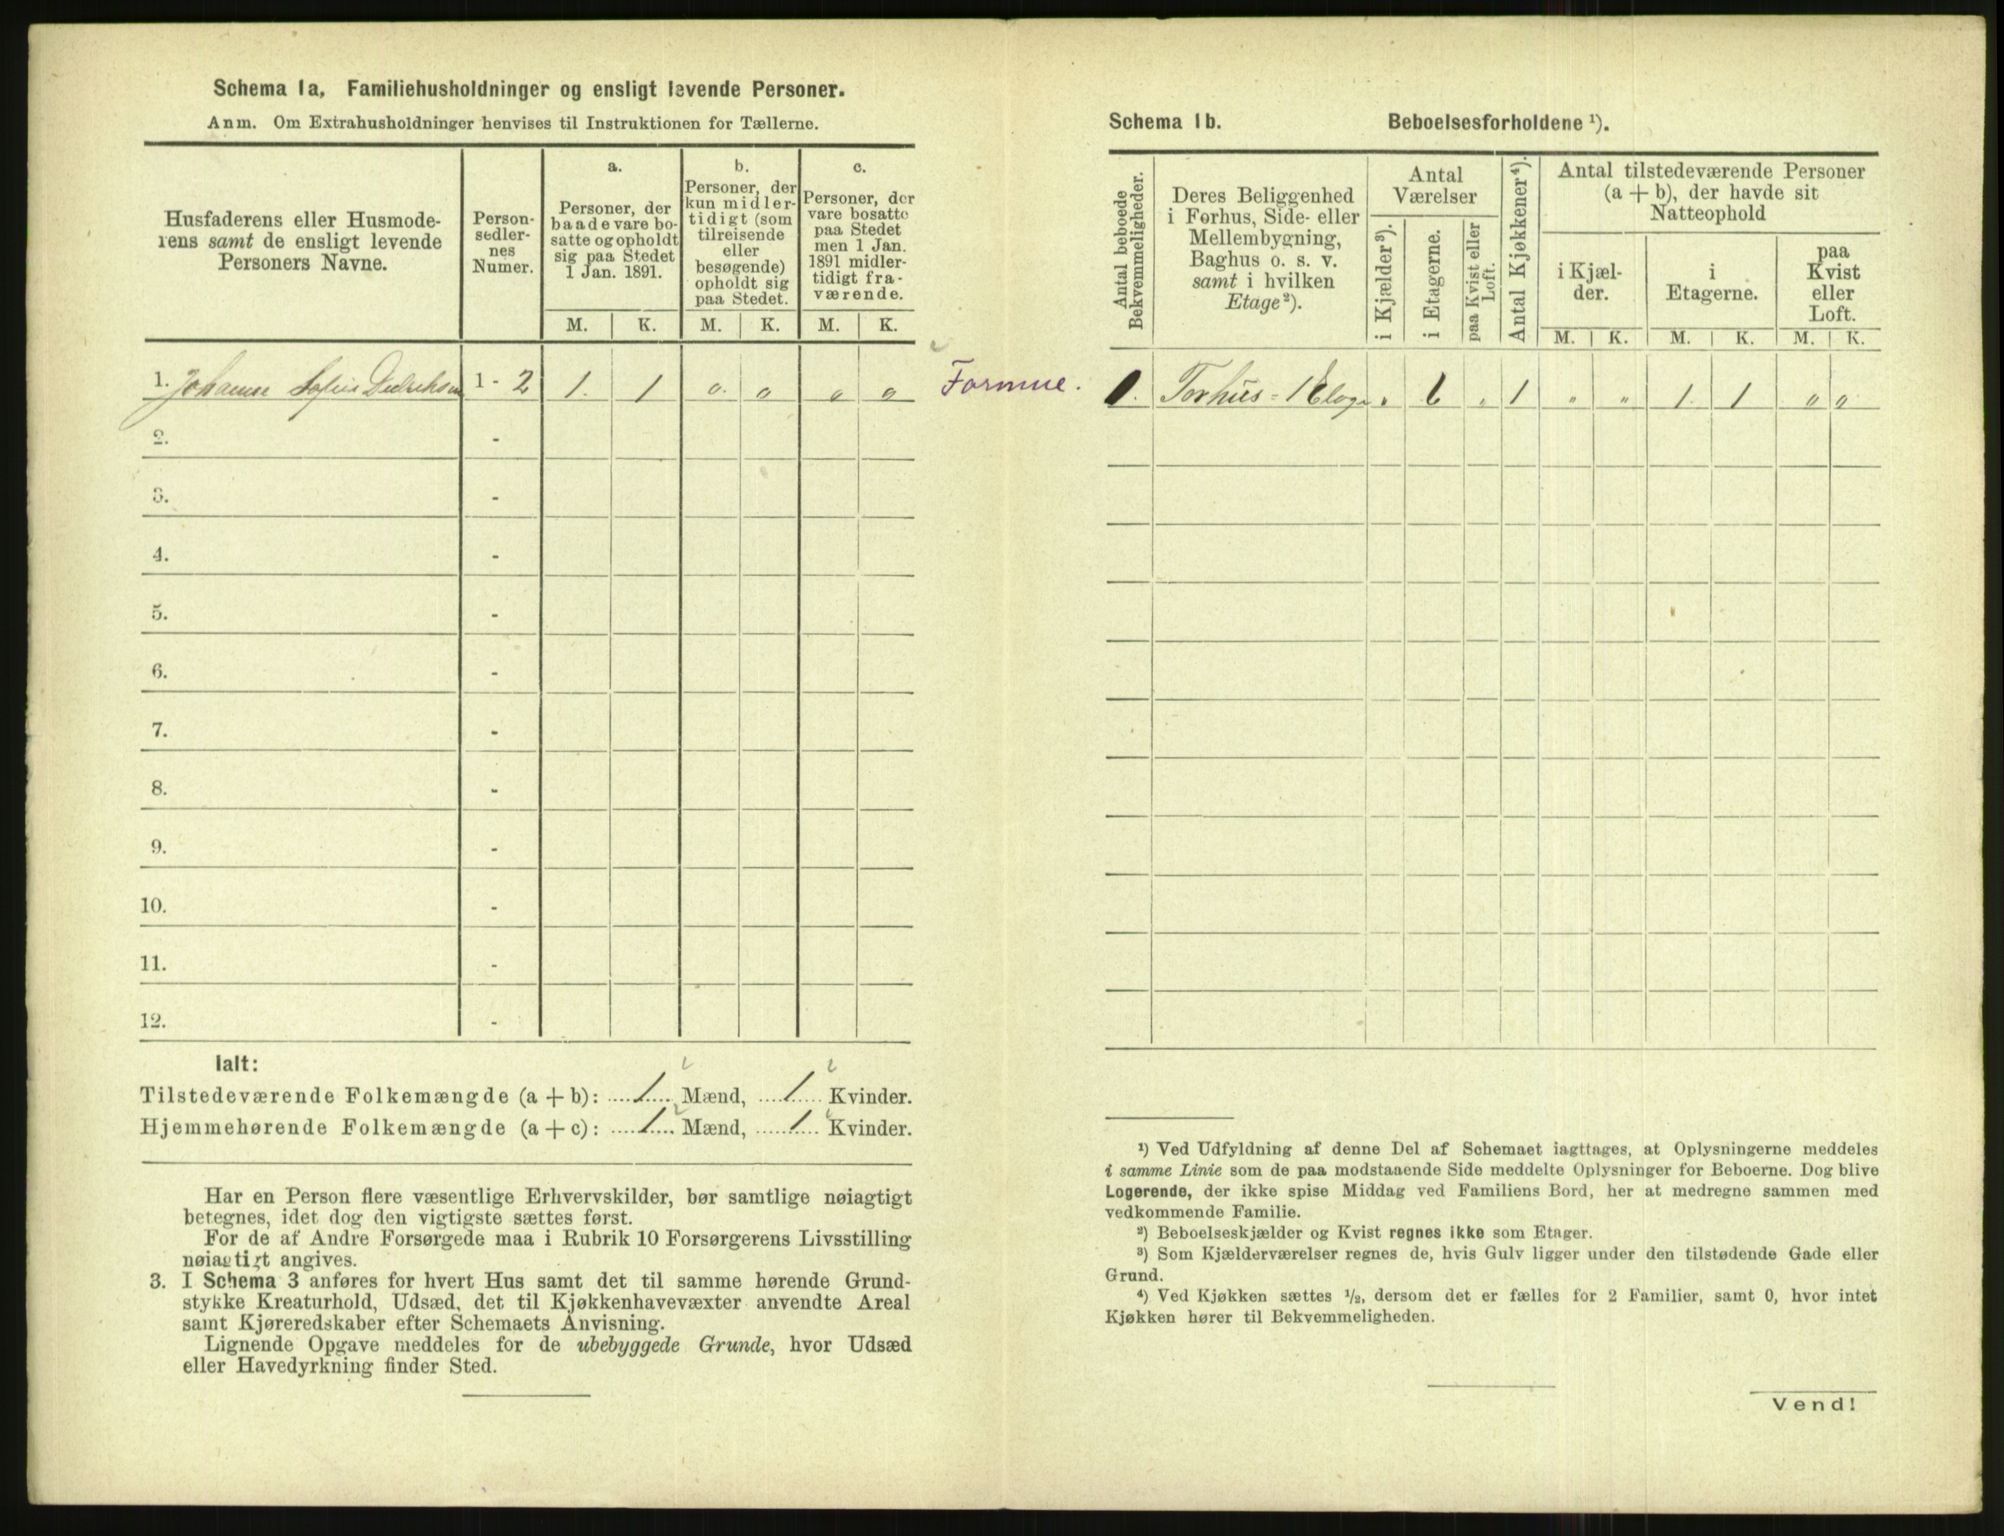 Schema 1a. Familiehusholdninger og ensligt levende Personer.
Anm. Om Extrahusholdninger henvises til Instruktionen for Tællerne.
Husfaderens eller Husmode-
rens samt de ensligt levende
Personers Navne.
Person-
sedler-
nes
Numer.
a.
Personer, der
baade vare bo-
satte og opholdt
sig paa Stedet
1 Jan. 1891.
b.
Personer, der
kun midler-
tidigt (som
tilreisende
eller
besøgende)
opholdt sig
paa Stedet.
c.
Personer, der
vare bosatte
paa Stedet
men 1 Jan.
1891 midler-
tidigt fra-
værende.
M. K. M. K. M. K.
1. Johanne Sofie 1 - 2 1. 1 0. 0 0 0 Formue.
2. -
3. -
4. -
5. -
6. -
7. -
8. -
9. -
10. -
11. -
12. -
Ialt:
Tilstedeværende Folkemængde (a + b): 1 Mænd, 1 Kvinder.
Hjemmehørende Folkemængde (a + c): 1 Mænd, 1 Kvinder.
Har en Person flere væsentlige Erhvervskilder, bør samtlige nøiagtigt
betegnes, idet dog den vigtigste sættes først.
For de af Andre Forsørgede maa i Rubrik 10 Forsørgerens Livsstilling
nøiagtigt angives.
3. I Schema 3 anføres for hvert Hus samt det til samme hørende Grund-
stykke Kreaturhold, Udsæd, det til Kjøkkenhavevæxter anvendte Areal
samt Kjøreredskaber efter Schemaets Anvisning.
Lignende Opgave meddeles for de ubebyggede Grunde, hvor Udsæd
eller Havedyrkning finder Sted.
Schema 1b. Beboelsesforholdene ¹).
Antal beboede
Bekvemmeligheder.
Deres Beliggenhed
i Forhus, Side- eller
Mellembygning,
Baghus o. s. v.
samt i hvilken
Etage²).
Antal
Værelser
i Kjælder³).
i Etagerne.
paa Kvist eller
Loft.
Antal Kjøkkener⁴).
Antal tilstedeværende Personer
(a + b), der havde sit
Natteophold
i Kjæl-
der.
i
Etagerne.
paa
Kvist
eller
Loft.
M. K. M. K. M. K.
Forhus = 1 Etage " 6 " 1 " " 1 1 " "
¹) Ved Udfyldning af denne Del af Schemaet iagttages, at Oplysningerne meddeles
i samme Linie som de paa modstaaende Side meddelte Oplysninger for Beboerne. Dog blive
Logerende, der ikke spise Middag ved Familiens Bord, her at medregne sammen med
vedkommende Familie.
²) Beboelseskjælder og Kvist regnes ikke som Etager.
³) Som Kjælderværelser regnes de, hvis Gulv ligger under den tilstødende Gade eller
Grund.
⁴) Ved Kjøkken sættes ½, dersom det er fælles for 2 Familier, samt 0, hvor intet
Kjøkken hører til Bekvemmeligheden.
Vend!